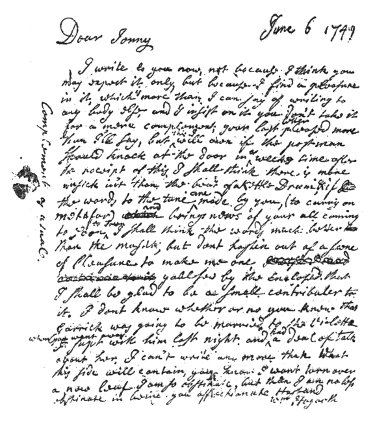 June 6 1749
Dear Jenny
I write to you now, not because I think you
may expect it only, but because I find a pleasure
in it, which is more than I can say of writing to
any body else, and I insist on it you don't take it
for a mere complement, your last pleased more
than I'll say, but this I will own if the postman
should knock at the door in a week's time after
the receipt of this, I shall think there is more
musick in't than the beat of a Kettle Drum, & if
the words to the tune are made by you, (to carry on
metafor) and brings news of your all coming
so soon to town I shall think the words much better
than the musick, but dont hasten out of a scene
of Pleasure to make me one
you'll see by the Enclosed that
I shall be glad to be a small contributer to
it. I dont know whether or no you knew that
Garrick was going to be married to the Violette
when you went away. I supt with him last night and had a deal of talk
about her. I can't write any more than what
this side will contain, you know I wont turn over
a new leaf I am so obstinate, but then I am no less
obstinate in being your affectionate Husband
Wm Hogarth
Complement as usual.